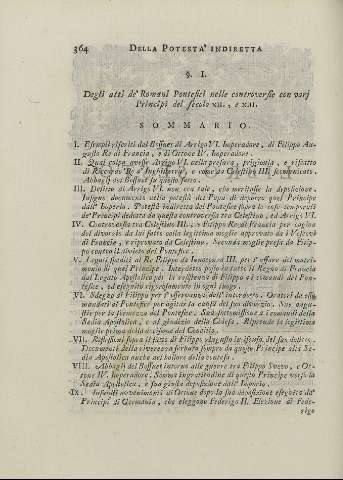 364 DELLA POTESTA' INDIRETTA
§. I.
Degli atti de' Romani Pontefici nelle controversie con varj
Principi del secolo XII., e XIII.
SOMMARIO.
I. Esempli riferiti dal Bossuet di Arrigo VI. Imperadore, di Filippo Au-
gusto Re di Francia, e di Ottone IV. Imperadore.
II. Qual colpa avesse Arrigo VI. nella presura, prigionia, e riscatto
di Riccardo Re d'Inghilterra, e come da Celestino III. scomunicato.
Abbagli del Bossuet su questo fatto.
III. Delitto di Arrigo VI. non era tale, che meritasse la deposizione.
Insigne documento nelle potestà del Papa di deporre quel Principe
dall'Imperio. Potestà indiretta del Pontefice sopra le cose temporali
de' Principi dedotta da questa controversia tra Celestino, ed Arrigo VI.
IV. Controversia tra Celestino III., e Filippo Re di Francia per cagion
del divorzio da lui fatto colla legittima moglie approvato da' Vescovi
di Francia, e riprovato da Celestino. Seconda moglie presa da Filip-
po contro il divieto del Pontefice.
V. Legati spediti al Re Filippo da Innocenzo III. per l'affare del matri-
monio di quel Principe. Interdetto posto in tutto il Regno di Francia
dal Legato Apostolico per la resistenza di Filippo a i comandi del Pon-
tefice, ed eseguito rigorosamente in ogni luogo.
VI. Sdegno di Filippo per l'osservanza dell'interdetto. Oratori da esso
mandati al Pontefice per agitar la causa del suo divorzio.
sie per la fermezza del Pontefice. Sua sottomissione a i comandi della
Sedia Apostolica, e al giudizio della Chiesa. Riprende la legittima
moglie prima della decisione del Concilio.
VII. Riflessioni sopra il fatto di Filippo Augusto in disusa del suo delitto.
Documenti della riverenza serbata sempre da questo Principe alla Se-
dia Apostolica anche nel bollore della contesa.
VIII. Abbagli del Bossuet intorno alle guerre tra Filippo Svevo, e Ot-
tone IV. Imperadore. Somma ingratitudine di questo Principe verso la
Sedia Apostolica, e sua giusta deposizione dall'Imperio.
IX. Infelici avvenimenti di Ottone dopo la sua deposizione eseguita da'
Principi di Germania, che eleggono Federigo II. Elezione di Fede-
rigo